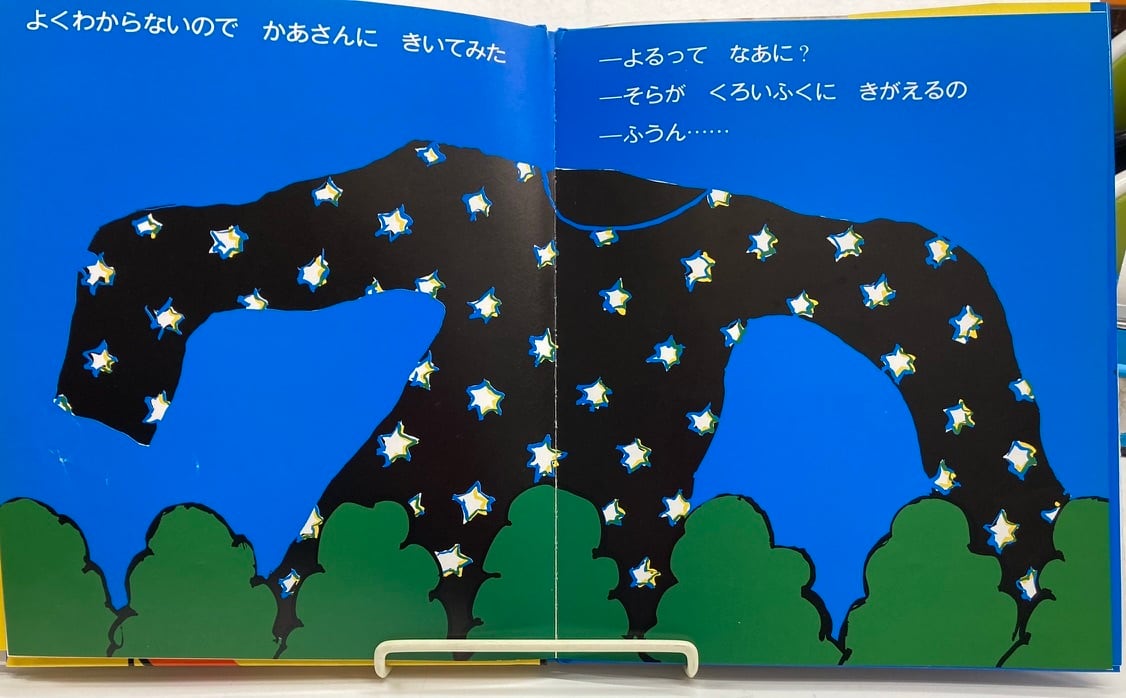 よくわからないので　かあさんに　きいてみた
―よるって　なあに？
―そらが　くろいふくに　きがえるの
―ふうん……